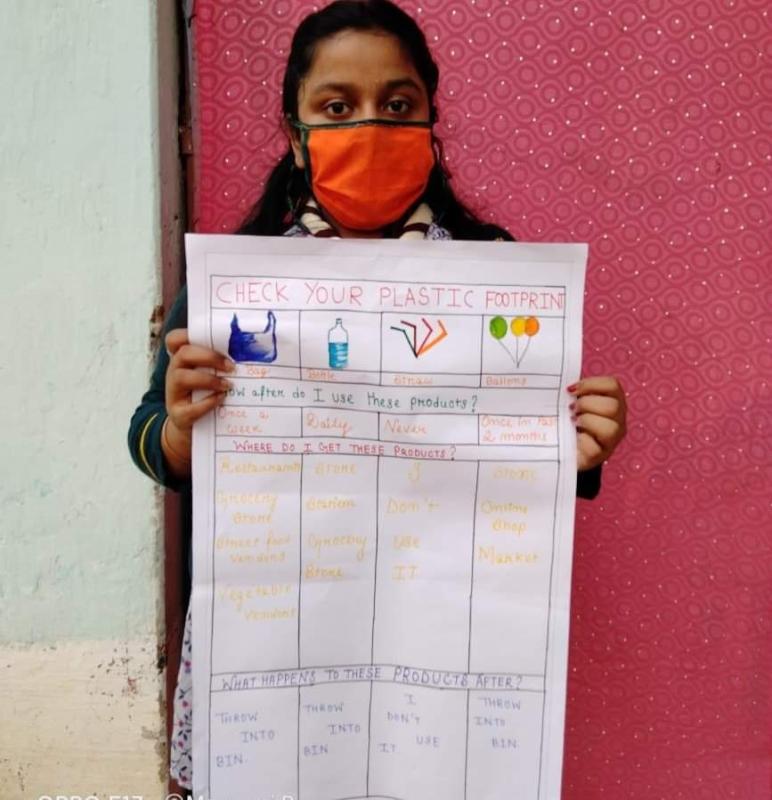 CHECK YOUR PLASTIC FOOTPRINT
Bag Bottle Straw Ballons
How after do I use these products?
Once a Daily Never Once in Past
week 2 months
WHERE DO I GET THESE PRODUCTS?
Restaurants Store I Store
Grocery Don't Online
Store Shop
Street food Grocery Use Market
vendors Store IT
Vegetable
vendors
WHAT HAPPENS TO THESE PRODUCTS AFTER?
THROW THROW I THROW
INTO INTO DON'T INTO
BIN. BIN USE BIN.
IT